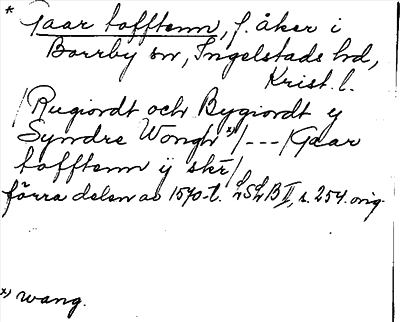 * Gaar tofftenn, f. åker i
Borrby sn, Ingelstads hd,
Krist. l.
/Rugiordt och Bygiordt y
Syndre Wongh x)/---/Gaar
tofftenn ÿ skr/
förra delen av 1570-t. LSLB II, s. 254. orig.
x) wang.